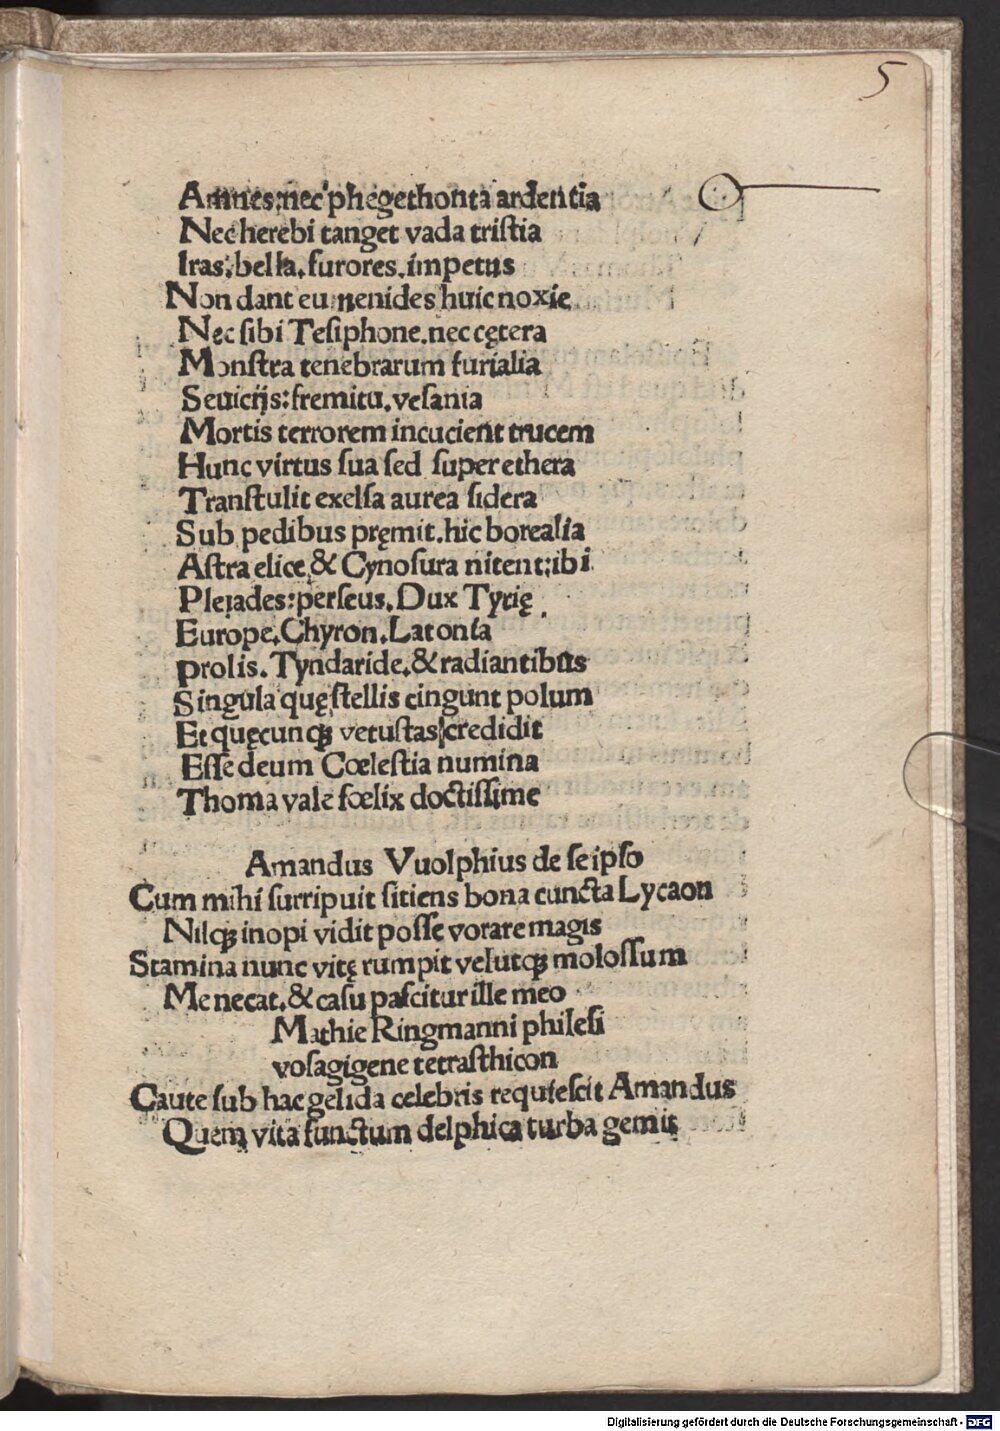 5
Amnes:nec phegethonta ardentia
Nec herebi tanget vada tristia
Iras.bella.furores.impetus
Non dant eumenides huic noxie
Nec sibi Tesiphone.nec cętera
Monstra tenebrarum furialia
Seuicijs:fremitu.vesania
Mortis terrorem incucient trucem
Hunc virtus sua sed super ethera
Transtulit exelsa aurea sidera
Sub pedibus pręmit.hic borealia
Astra elice & Cynosura nitent:ibi
Pleiades:perseus.Dux Tyrię
Europe.Chyron.Latonia
prolis.Tyndaride.& radiantibus
Singula quę stellis cingunt polum
Et quęcunqꝫ vetustas credidit
Esse deum Cœlestia numina
Thoma vale fœlix doctissime
Amandus Vuolphius de seipso
Cum mihi surripuit sitiens bona cuncta Lycaon
Nilqꝫ inopi vidit posse vorare magis
Stamina nunc vitę rumpit velutqꝫ molossum
Me necat.& casu pascitur ille meo
Mathie Ringmanni philesi
vosagigene tetrasthicon
Caute sub hac gelida celebris requiescit Amandus
Quem vita functum delphica turba gemit
Digitalisierung gefördert durch die Deutsche Forschungsgemeinschaft - DFG